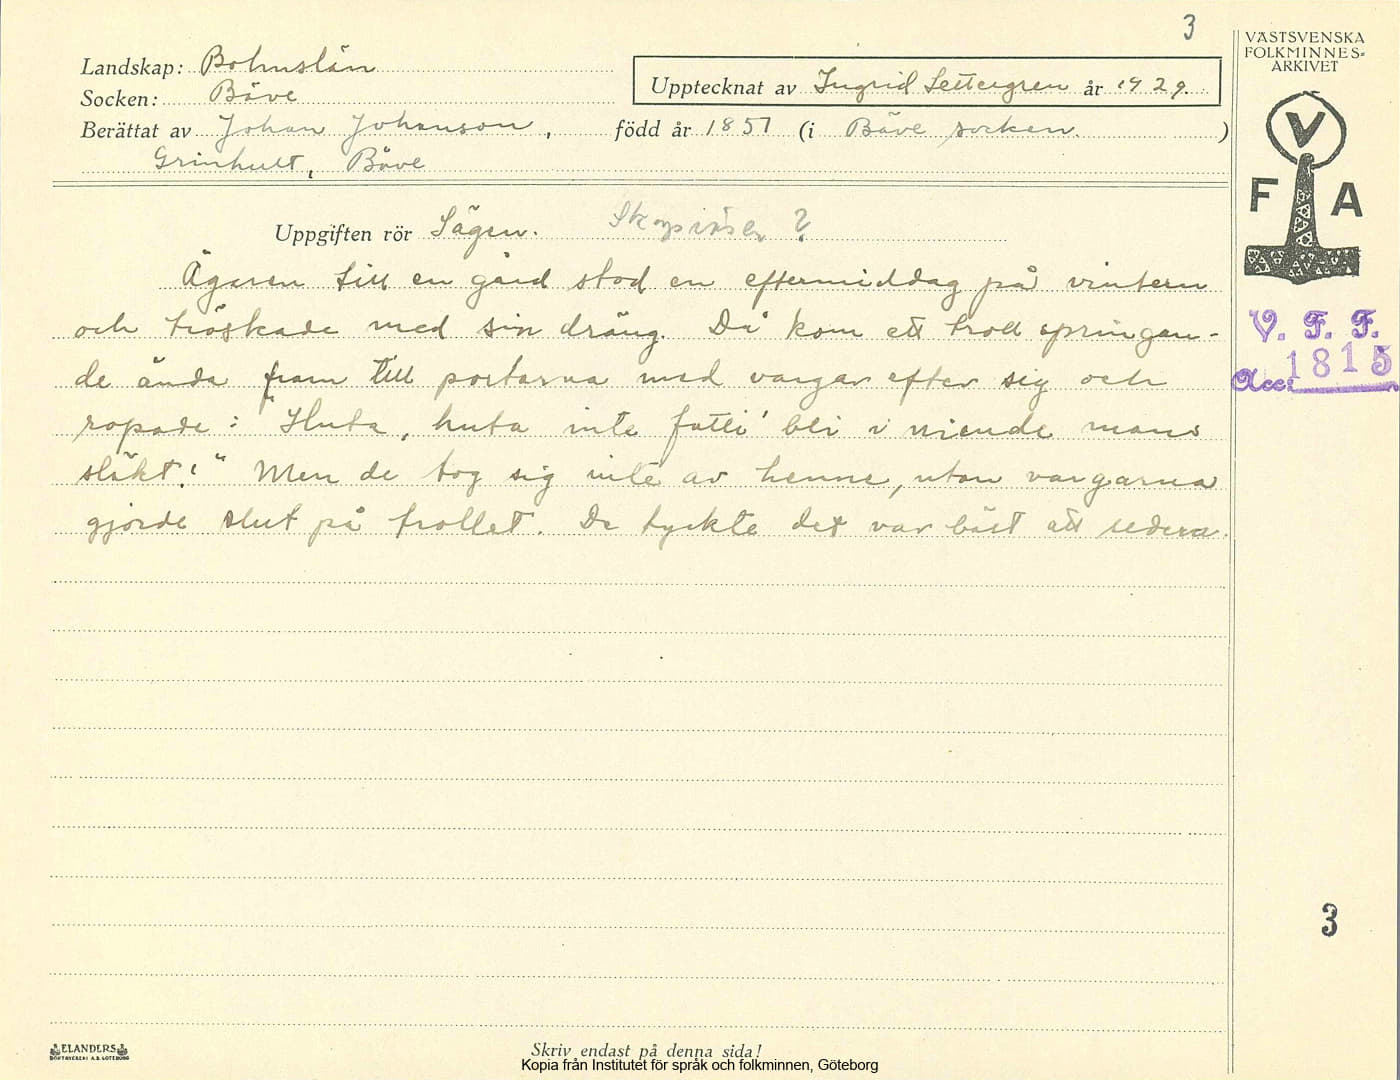 3
Landskap: Bohuslän
Socken: Bäve
Upptecknat av Ingrid Settergren år 1929.
Berättat av Johan Johanson, född år 1857 (i Bäve socken. )
Grinhult, Bäve
Uppgiften rör Sägen. ?
Ägaren till en gård stod en eftermiddag på vintern
och tröskade med sin dräng. Då kom ett troll springan-
de ända fram till portarna med vargar efter sig och
ropade: "Huta, huta inte bli i niende mans
släkt!" Men de tog sig inte av henne, utan vargarna
gjorde slut på trollet. De tyckte det var bäst att
VÄSTSVENSKA
FOLKMINNES-
ARKIVET
V
F A
V. F. F.
Acc: 1815
3
ELANDERS
BOKTRYCKERI A.B. GÖTEBORG
Skriv endast på denna sida!
Kopia från Institutet för språk och folkminnen, Göteborg